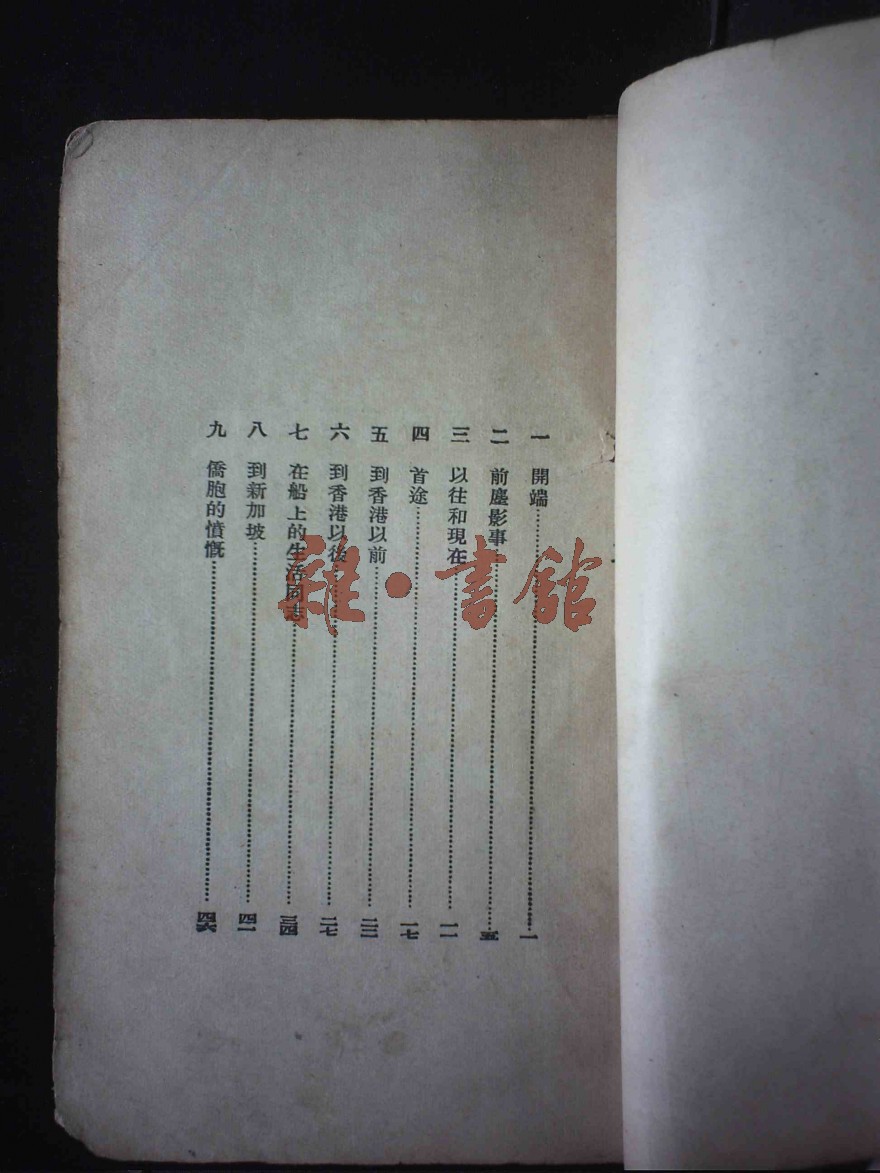 一 開端……一
二 前塵影事……五
三 以往和現在……一一
四 首途……一七
五 到香港以前……二二
六 到香港以後……二七
七 在船上的生活同志……三四
八 到新加坡……四一
九 僑胞的憤慨……四六
雜·書館